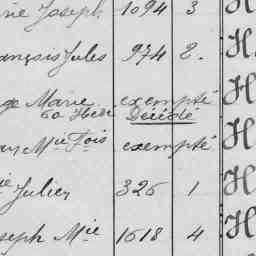 rie Joseph 1094 3 H
ançois Jules 974 2. H
ge Marie exempté H
Décédé
Mie Fois exempté H
ie Julien 326 1 H
seph Mie 1618 4 H